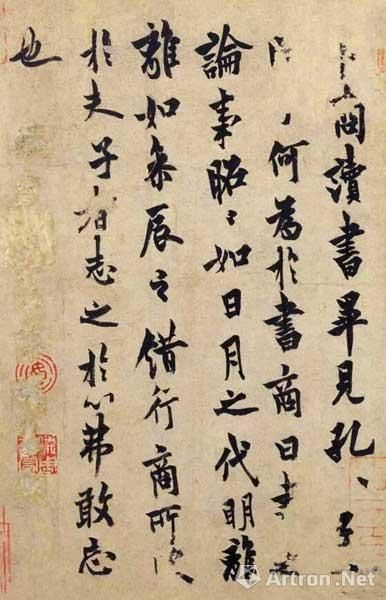 商讀書畢見孔〻子〻
何為於書商曰書
論事昭〻如日月之代明離
離如參辰之錯行商所受
於夫子者志之於心弗敢忘
也
Artron.Net